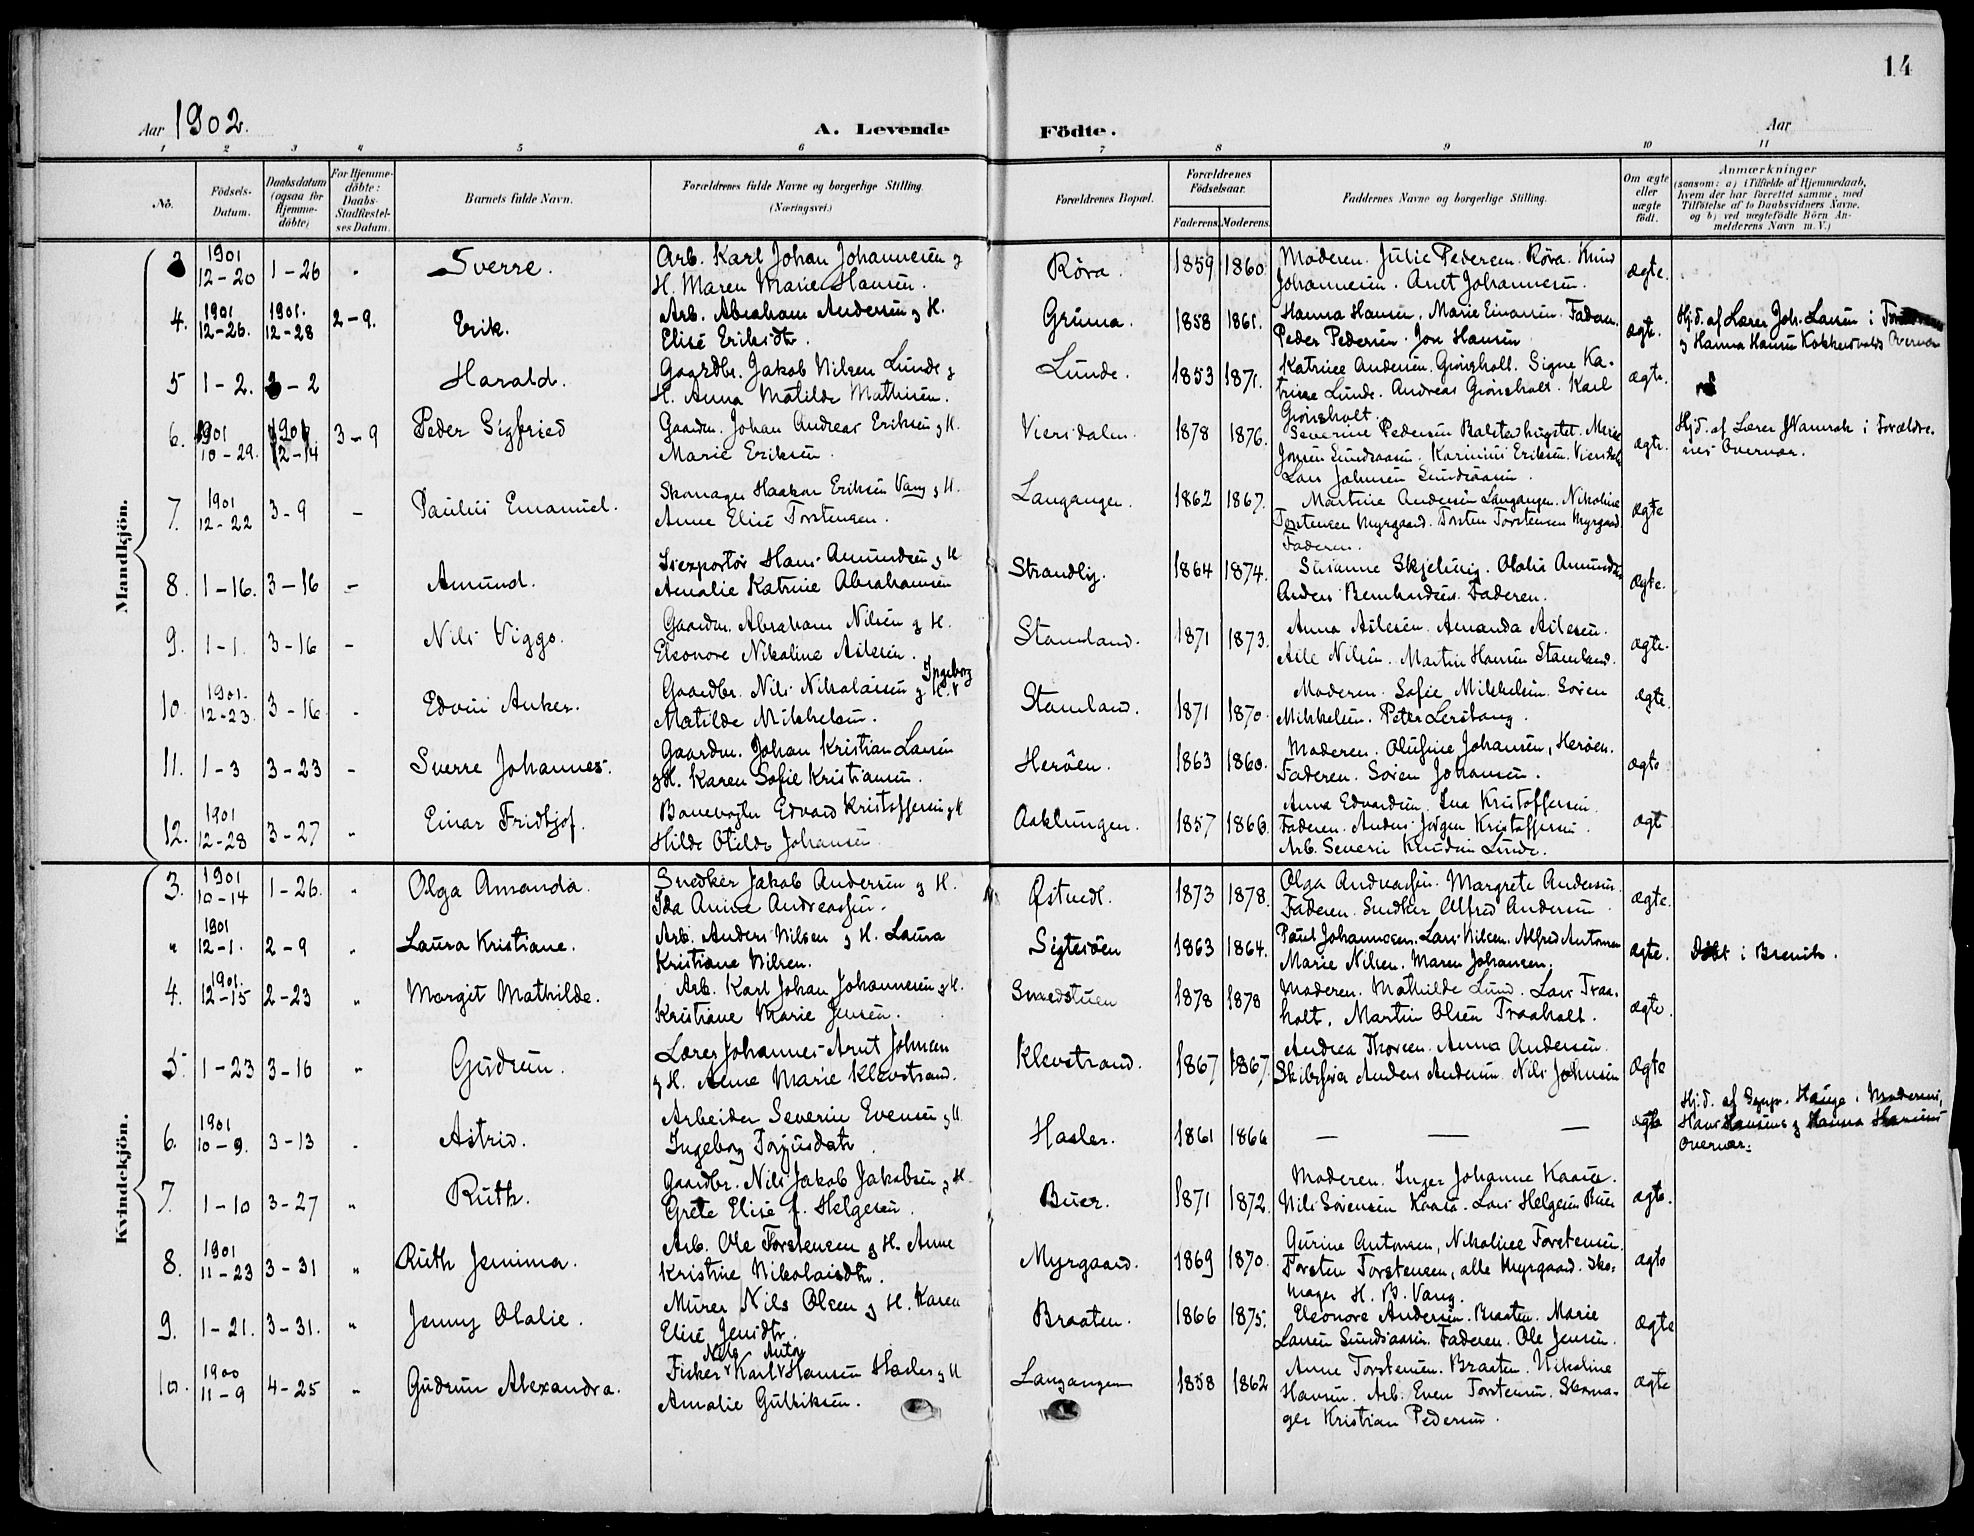 14
Aar 1902.
A. Levende Födte.
Aar
1 2 3 4 5 6 7 8 9 10 11
No. Födsels-Datum. Daabsdatum (ogsaa for Hjemmedöbte) For Hjemmedöbte: Daabs-Stadfæstelses Datum. Barnets fulde Navn. Forældrenes fulde Navne og borgerlige Stilling. (Næringsvei.) Forældrenes Bopæl. Forældrenes Födselsaar. Faderens Moderens. Faddernes Navne og borgerlige Stilling. Om ægte eller uægte födt. Anmærkninger (saasom: a) i Tilfælde af Hjemmedaab, hvem der har forrettet samme, med Tilföielse af to Daabsvidners Navne, og b) ved uægtefödte Börn Anmelderens Navn m. V.)
Mandkjön.
3 1901 12-20 1-26 Sverre. Arb. Karl Johan Johannesen g
H. Maren Marie Hansen. Röra. 1859 1860 Moderen. Julie Pedersen. Röra. Knud
Johannesen. Anet Johannesen. ægte.
4. 1901 12-26. 1901. 12-28 2-9. Erik. Arb. Abraham Andersen g H.
Elise Eriksdtr. Gruma. 1858 1861. Hanna Hansen, Marie Einarsen. Faderen.
Peder Pedersen. Jon Hansen. ægte. Hj.d. af Lærer Joh. Larsen i
g Hanna Hansen
5 1-2. 3-2 Harald. Gaardbr. Jakob Nilsen Lunde g
H. Anna Matilde Mathisen. Lunde. 1853 1871. Katrine Andersen. Grönsholt. Signe Ka-
trine Lunde. Andreas Grönsholt. Karl
Grönsholt. ægte.
6. 1901 10-29. 1901 12-14 3-9 Peder Sigfried Gaardm. Johan Andreas Eriksen g H.
Marie Eriksen. Viersdalen. 1878 1876. Severine Pedersen
Karinius Eriksen.
Lars Johnsen ægte. Hj.d. af Lærer i Forældre-
nes Overvær.
7. 1901 12-22 3-9 - Paulus Emanuel. Skomager Haakon Eriksen Vang g H.
Anne Elise Torstensen. Langangen. 1862 1867. Martine Andersen Langangen. Nikoline
Torstensen Myrgaard. Torsten Torstensen Myrgaard
Faderen. ægte
8. 1-16. 3-16 - Amund. Isexportör Hans Amundsen g H
Amalie Katrine Abrahamsen Strandby. 1864 1874. Susanne Skjelvig. Olalia Amundsen
Anders Bernhardsen. Faderen. ægte.
9. 1-1. 3-16 - Nils Viggo. Gaardm. Abraham Nilsen g H.
Eleonore Nikoline Aslesen. Stamland. 1871 1873. Anna Aslesen. Amanda Aslesen.
Asle Nilsen. Martin Hansen Stamland. ægte.
10. 1901. 12-23. 3-16 Edvin Anker. Gaardbr. Nils Nikolaisen g H. Ingeborg
Matilde Mikkelsen. Stamland. 1871 1870. Moderen. Sofie Mikkelsen. Sören
Mikkelsen. Peter Lerstang. ægte.
11. 1-3 3-23 - Sverre Johannes. Gaardm. Johan Kristian Larsen
g H. Karen Sofie Kristiansen. Heröen. 1863 1860. Moderen. Olufine Johansen, Heröen.
Faderen. Sören Johansen. ægte
12. 1901 12-28 3-27 " Einar Fridtjof. Banevogter Edvard Kristoffersen g H
Hilda Otilde Johansen Aaklungen. 1857 1866. Anna Edvardsen. Ina Kristoffersen
Faderen. Anders Jörgen Kristoffersen.
Arb. Severin Knudsen Lunde. ægt
Kvindekjön.
3. 1901 10-14 1-26. " Olga Amanda. Snedker Jakob Andersen g H.
Ida Anine Andreassen. Östvedt. 1873 1878. Olga Andreassen. Margrete Andersen.
Faderen. Snedker Alfred Andersen ægte.
" 1901 12-1. 2-9 " Laura Kristiane. Arb. Anders Nilsen g H. Laura
Kristiane Nilsen. Sigtesöen 1863 1864. Paul Johannesen. Lars Nilsen. Alfred Antonsen
Marie Nilsen. Maren Johansen. ægte. Döbt i Brevik.
4. 1901. 12-15 2-23 " Margit Mathilde. Arb. Karl Johan Johannesen g H.
Kristiane Marie Jensen. Smedstuen 1878 1878 Moderen. Mathilde Lund. Lars Traa-
holt. Martin Olsen Traaholt. ægte.
5. 1-23 3-16 " Gudrun. Lærer Johannes Arnt Johnsen
g H. Anne Marie Klevstrand. Klevstrand. 1867 1867. Andrea Thorsen. Anna Andersen.
Anders Andersen. Nils Johnsen ægte
6. 1901 10-9. 3-13 Astrid. Arbeider Severin Evensen g H.
Ingeborg Torjusdatr. Hasler. 1861 1866 - - - ægte Hj.d. af Hauge i Moderens,
Hans Hansens g Hanna Hansens
Overvær.
7. 1-10 3-27 " Ruth. Gaardbr. Nils Jakob Jakobsen g H.
Grete Elise f. Helgesen. Buer. 1871 1872. Moderen. Inger Johanne Kaasa.
Nils Sörensen Kaasa. Lars Helgesen Buer ægte.
8. 1901 11-23 3-31 " Ruth Jemima. Arb. Ole Torstensen g H. Anne
Kristine Nikolaisdtr. Myrgaard. 1869 1870. Gurine Antonsen, Nikoline Torstensen.
Torsten Torstensen, alle Myrgaard. Sko-
mager H. B. Vang. ægte
9. 1-21. 3-31. " Jenny Olalie. Murer Nils Olsen g H. Karen
Elise Jensdtr. Braaten. 1866 1875. Eleonore Andersen. Braaten. Marie
Larsen Sundsaasen. Faderen. Ole Jensen. ægte
10. 1900 11-9 4-25 " Gudrun Alexandra. Nils Anton
Fisker Karl Hansen Hasler g H
Amalie Gulliksen. Langangen 1858 1862 Anne Torstensen. Braaten. Nikoline
Hansen. Arb. Even Torstensen. Skoma-
ger Kristian Pedersen. ægte